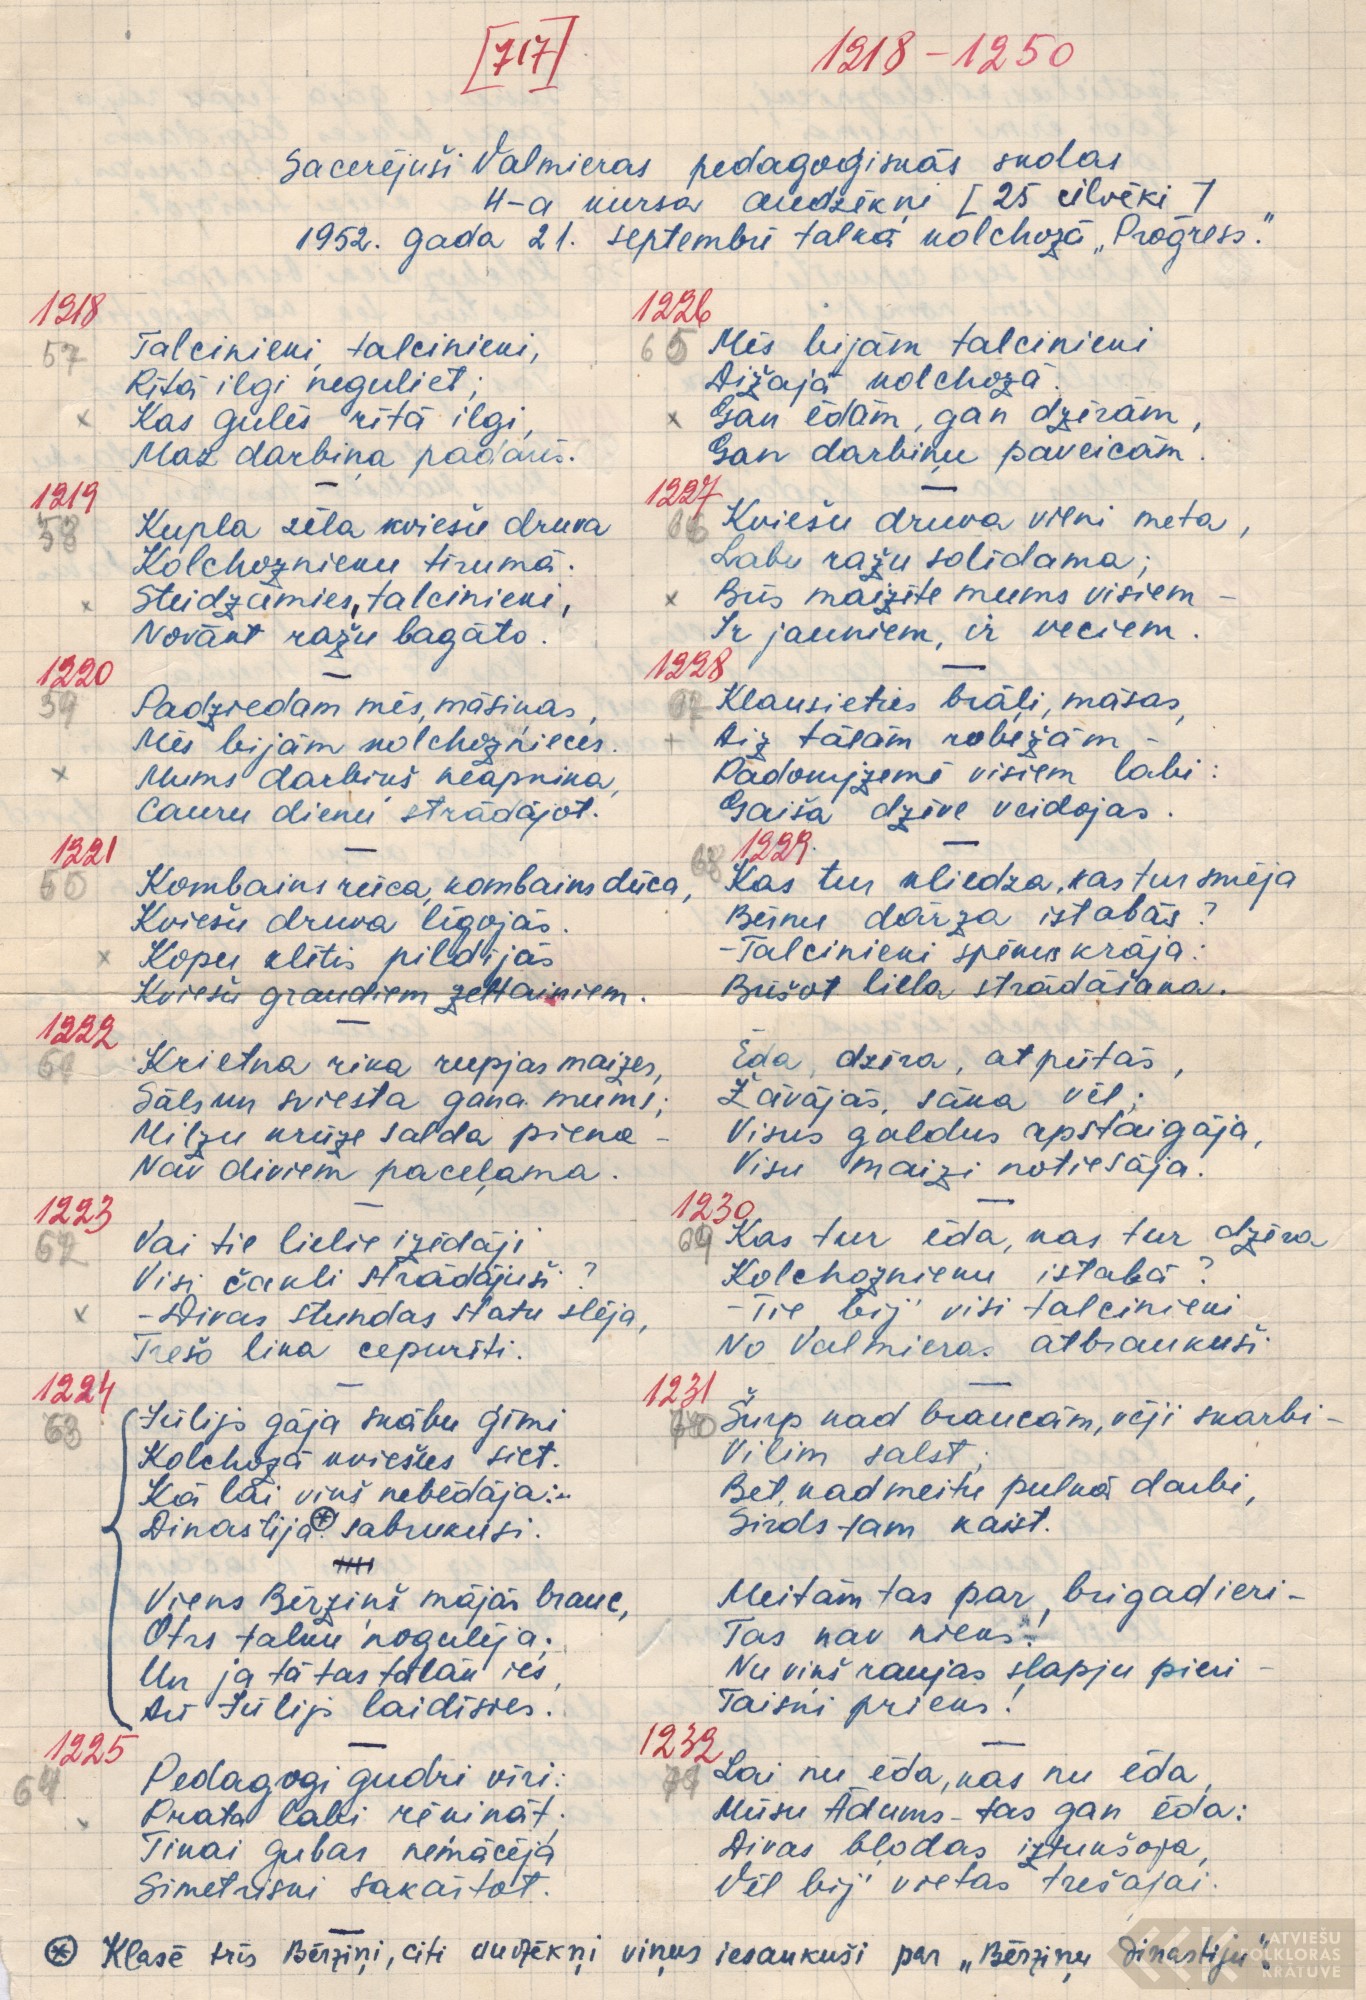 [717]
1218-1250
Sacerējuši Valmieras pedagoģiskās skolas
4-a kursa audzēkņi [25 cilvēki]
1952. gada 21. septembrī talkā kolchozā „Progress."
1218
57
Talcinieki, talcinieki,
Rītā ilgi neguliet;
x Kas gulēs rītā ilgi,
Maz darbiņa padarīs.
1219
58
Kupla zēla kviešu druva
Kolchoznieku tīrumā.
x Steidzamies, talcinieki,
Novākt ražu bagāto.
1220
59
Padziedam mēs, māsiņas,
Mēs bijām kolchoznieces.
x Mums darbiņš neapnika,
Cauru dienu strādājot.
1221
Kombains rūca, kombains dūca,
Kviešu druva līgojās.
x Kopu klētis pildījās
Kviešu graudiem zeltainiem.
1222
61
Krietna rika rupjas maizes,
Sāls un sviesta gana mums;
Milzu krūze salda piena -
Nav diviem paceļama.
1223
62
Vai tie lielie izēdāji
Visi čakli strādājuši?
x -Divas stundas statu slēja,
Trešo lika cepurīti.
1224
63
Jūlijs gāja skābu ģīmi
Kolchozā kviešus siet.
Kā lai viņš nebēdāja:-
Dinastija * sabrukusi.
Viens Bērziņš mājās brauc,
Otrs talku nogulēja;
Un ja tā tas tālāk ies,
Arī Jūlijs laidīsies.
1225
64
Pedagogi gudri vīri:
Prata labi rēķināt;
Tikai gubas nemācēja
Simetriski sakārtot.
1226
65
Mēs bijām talcinieki
Dižajā kolchozā.
x Gan ēdām, gan dzērām,
Gan darbiņu paveicām.
1227
66
Kviešu druva viļņi meta,
Labu ražu solīdama;
x Būs maizīte mums visiem -
Ir jauniem, ir veciem.
1228
67
Klausieties brāļi, māsas,
+ Aiz tālām robežām -
Padomjzemē visiem labi:
Gaiša dzīve veidojas.
1229.
68
Kas tur kliedza, kas tur smēja
Bērnu dārza istabās?
-Talcinieki spēkus krāja:
Būšot liela strādāšana.
Ēda, dzēra, atpūtās,
Žāvājās, sāka vēl;
Visus galdus apstaigāja,
Visu maizi notiesāja.
1230
69
Kas tur ēda, kas tur dzēra
Kolchoznieku istabā?
-Tie bij' visi talcinieki
No Valmieras atbraukuši.
1231
70
Šurp kad braucām, vēji skarbi -
Vilim salst;
Bet, kad meitu pulkā darbi,
Sirds tam kaist.
Meitām tas par brigadieri -
Tas nav nieks!
Nu viņš raujas slapju pieri -
Taisni prieks!
1232
71
Lai nu ēda, kas nu ēda,
Mūsu Ādums - tas gan ēda:
Divas bļodas iztukšoja,
Vēl bij' vietas trešajai.
* Klasē trīs Bērziņi, citi audzēkņi viņus iesaukuši par „Bērziņu dinastiju".
LATVIEŠU
FOLKLORAS
KRĀTUVE